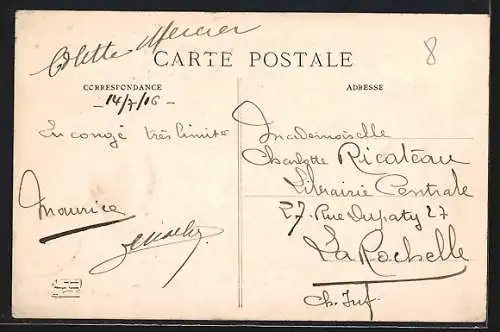 Colette Mercier
8
CARTE POSTALE
CORRESPONDANCE
ADRESSE
14/7/16
En congé très limité
Maurice
Mademoiselle
Charlotte Ricateau
Librairie Centrale
27. Rue Dupaty 27
La Rochelle
Ch. Inf.